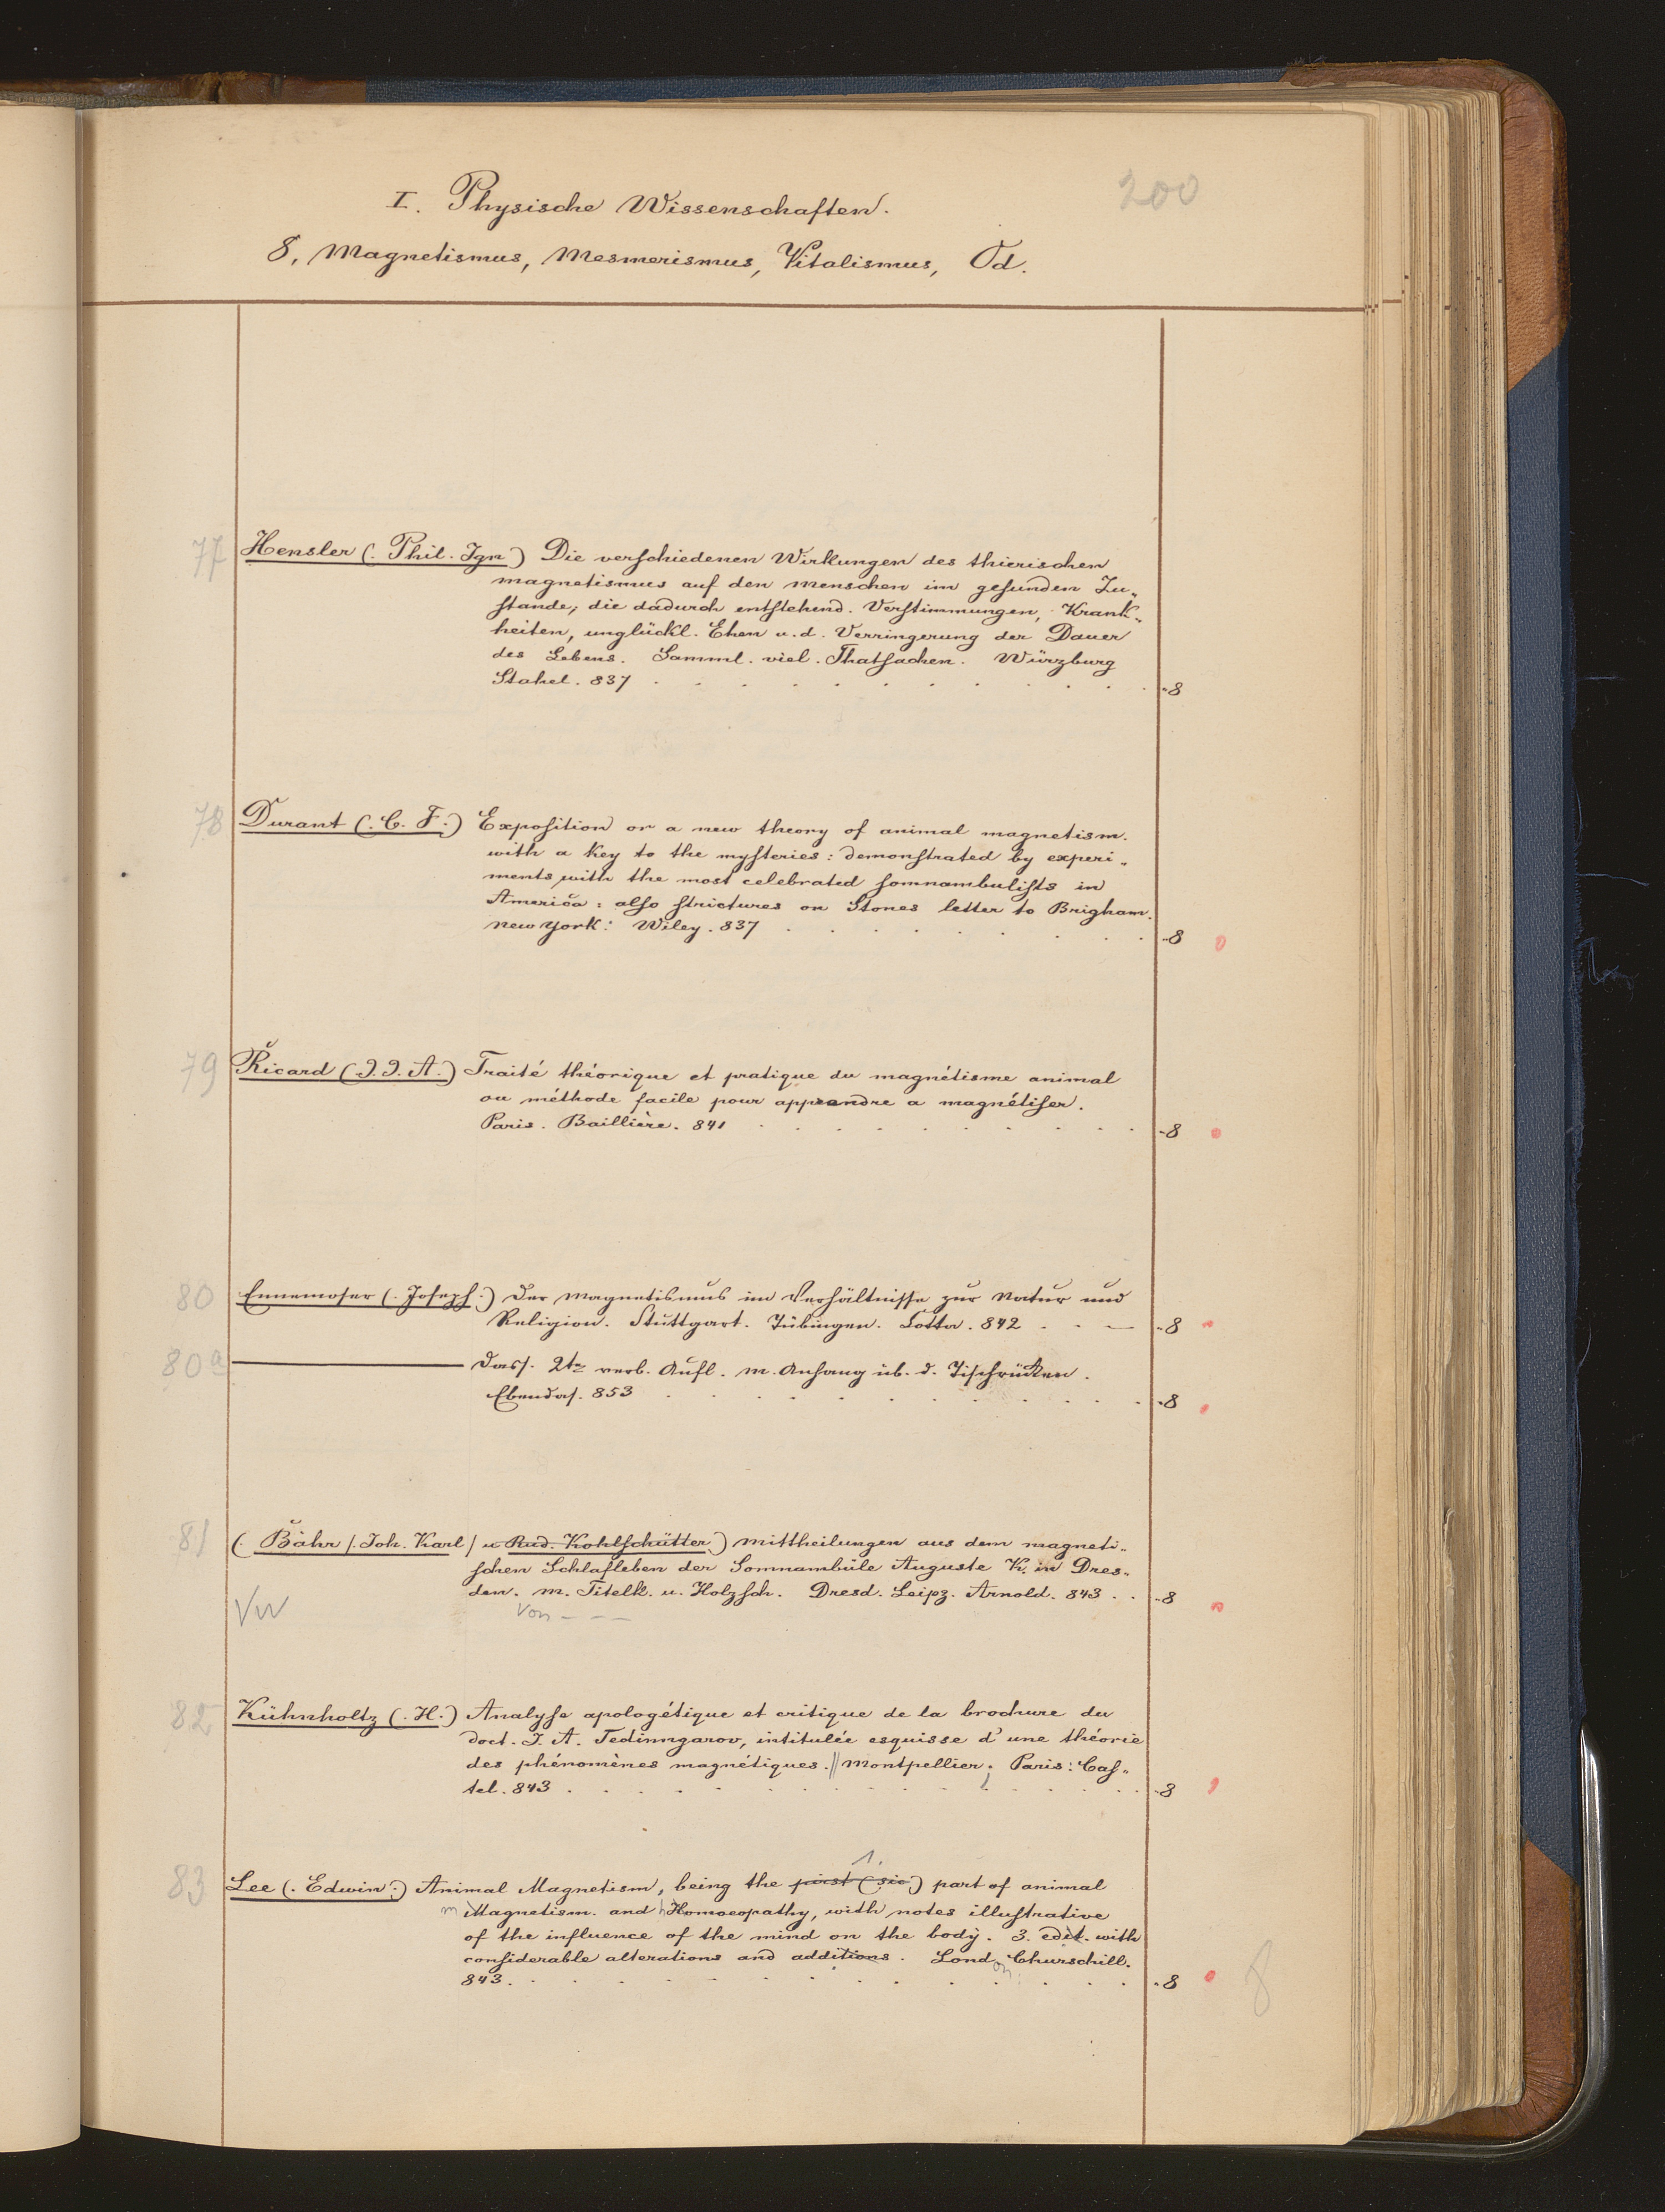 200
I. Physische Wissenschaften.
8, Magnetismus, Mesmerismus, Vitalismus, Od.
77 Hensler (. Phil. Ign.) Die verschiedenen Wirkungen des thierischen
magnetismus auf den Menschen im gesunden Zu„
stande, die dadurch entstehend. Verstimmungen, Krank„
heiten, unglückl. Ehen u. d. Verringerung der Dauer
des Lebens. Samml. viel. Thatsachen. Würzburg
Stahel. 837 . . . . . . . . . . . . „8
78 Durant (. C. F.) Exposition or a new theory of animal magnetism.
with a Key to the mysteries: demonstrated by experi„
ments with the most celebrated somnambulists in
America: also strictures on Stones letter to Brigham.
new York: Wiley. 837 . . . . . . . . . „8 0
79 Ricard (. J. J. A.) Traité théorique et pratique du magnétisme animal
ou méthode facile pour apprendre a magnétiser.
Paris. Baillière. 841 . . . . . . . . . . „8 0
80 Ennemoser (. Joseph.) Der Magnetismus im Verhältnisse zur Natur und
Religion. Stuttgart. Tübingen. Cotta. 842 . . — „8
80a ——— Dass. 2te verb. Aufl. m. Anhang üb. d. Tischrücken.
Ebendas. 853 . . . . . . . . . . . „8
81 (. Bähr /. Joh. Karl / u. Rud. Kohlschütter.) Mittheilungen aus dem magneti„
schen Schlafleben der Somnambüle Auguste K. in Dres„
den. m. Titelk. u. Holzsch. Dresd. Leipz. Arnold. 843 . . „8 0
Von – – –
82 Kühnholtz (. H.) Analyse apologétique et critique de la brochure du
doct. J. A. Tedinngarov, intitulée esquisse d'une théorie
des phénomènes magnétiques. // Montpellier; Paris: Cas„
tel. 843 . . . . . . . . . . . . „8
1.
83 Lee (. Edwin.) Animal Magnetism, being the first (sic.) part of animal
m Magnetism. and h Homoeopathy, with notes illustrative
of the influence of the mind on the body. 3. edit. with
considerable alterations and additions. Lond. Churschill.
on
843. . . . . . . . . . . . . „8 0 8